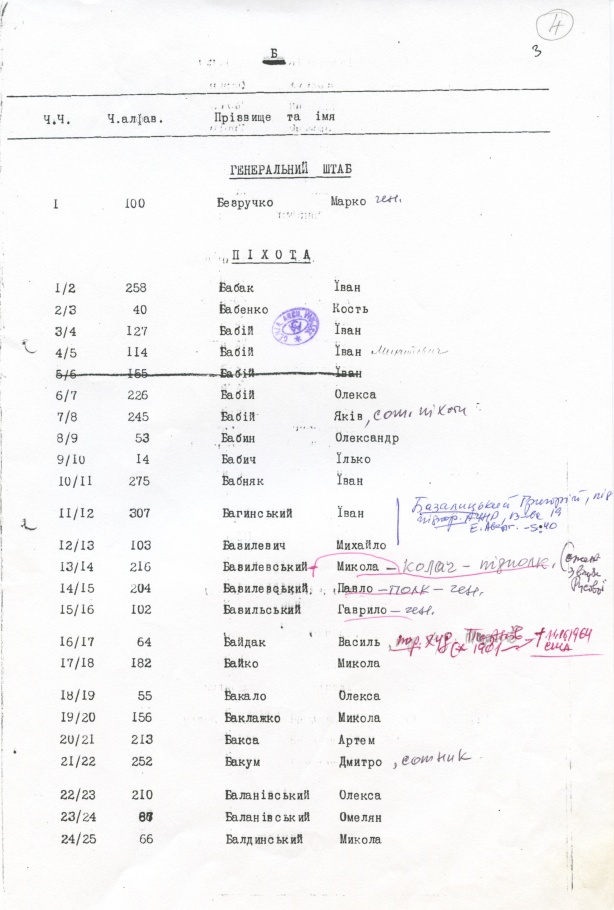 4
3
Б
Ч.Ч. Ч.алfав. Прізвище та імя
ГЕНЕРАЛЬНИЙ ШТАБ
I 100 Безручко Марко ген.
ПІХОТА
1/2 258 Бабак Їван
2/3 40 Бабенко Кость
3/4 127 Бабій Їван
4/5 114 Бабій Їван
5/6 155 Бабій Їван
6/7 226 Бабій Олекса
7/8 245 Бабій Яків, сот. піхоти
8/9 53 Бабин Олександр
9/10 14 Бабич Їлько
10/11 275 Бабняк Їван
Базалицький Григорій, під
11/12 307 Багинський Їван
12/13 103 Базилевич Михайло
13/14 216 Базилевський Микола – Колач – підполк.
14/15 204 Базилевський, Павло – полк – ген.
15/16 102 Базильський Гаврило – ген.
16/17 64 Байдак Василь, † 14.6.1964
США
17/18 182 Байко Микола
18/19 55 Бакало Олекса
19/20 156 Баклажко Микола
20/21 213 Бакса Артем
21/22 252 Бакум Дмитро, сотник
22/23 210 Баланівський Олекса
23/24 67 Баланівський Омелян
24/25 66 Балдинський Микола